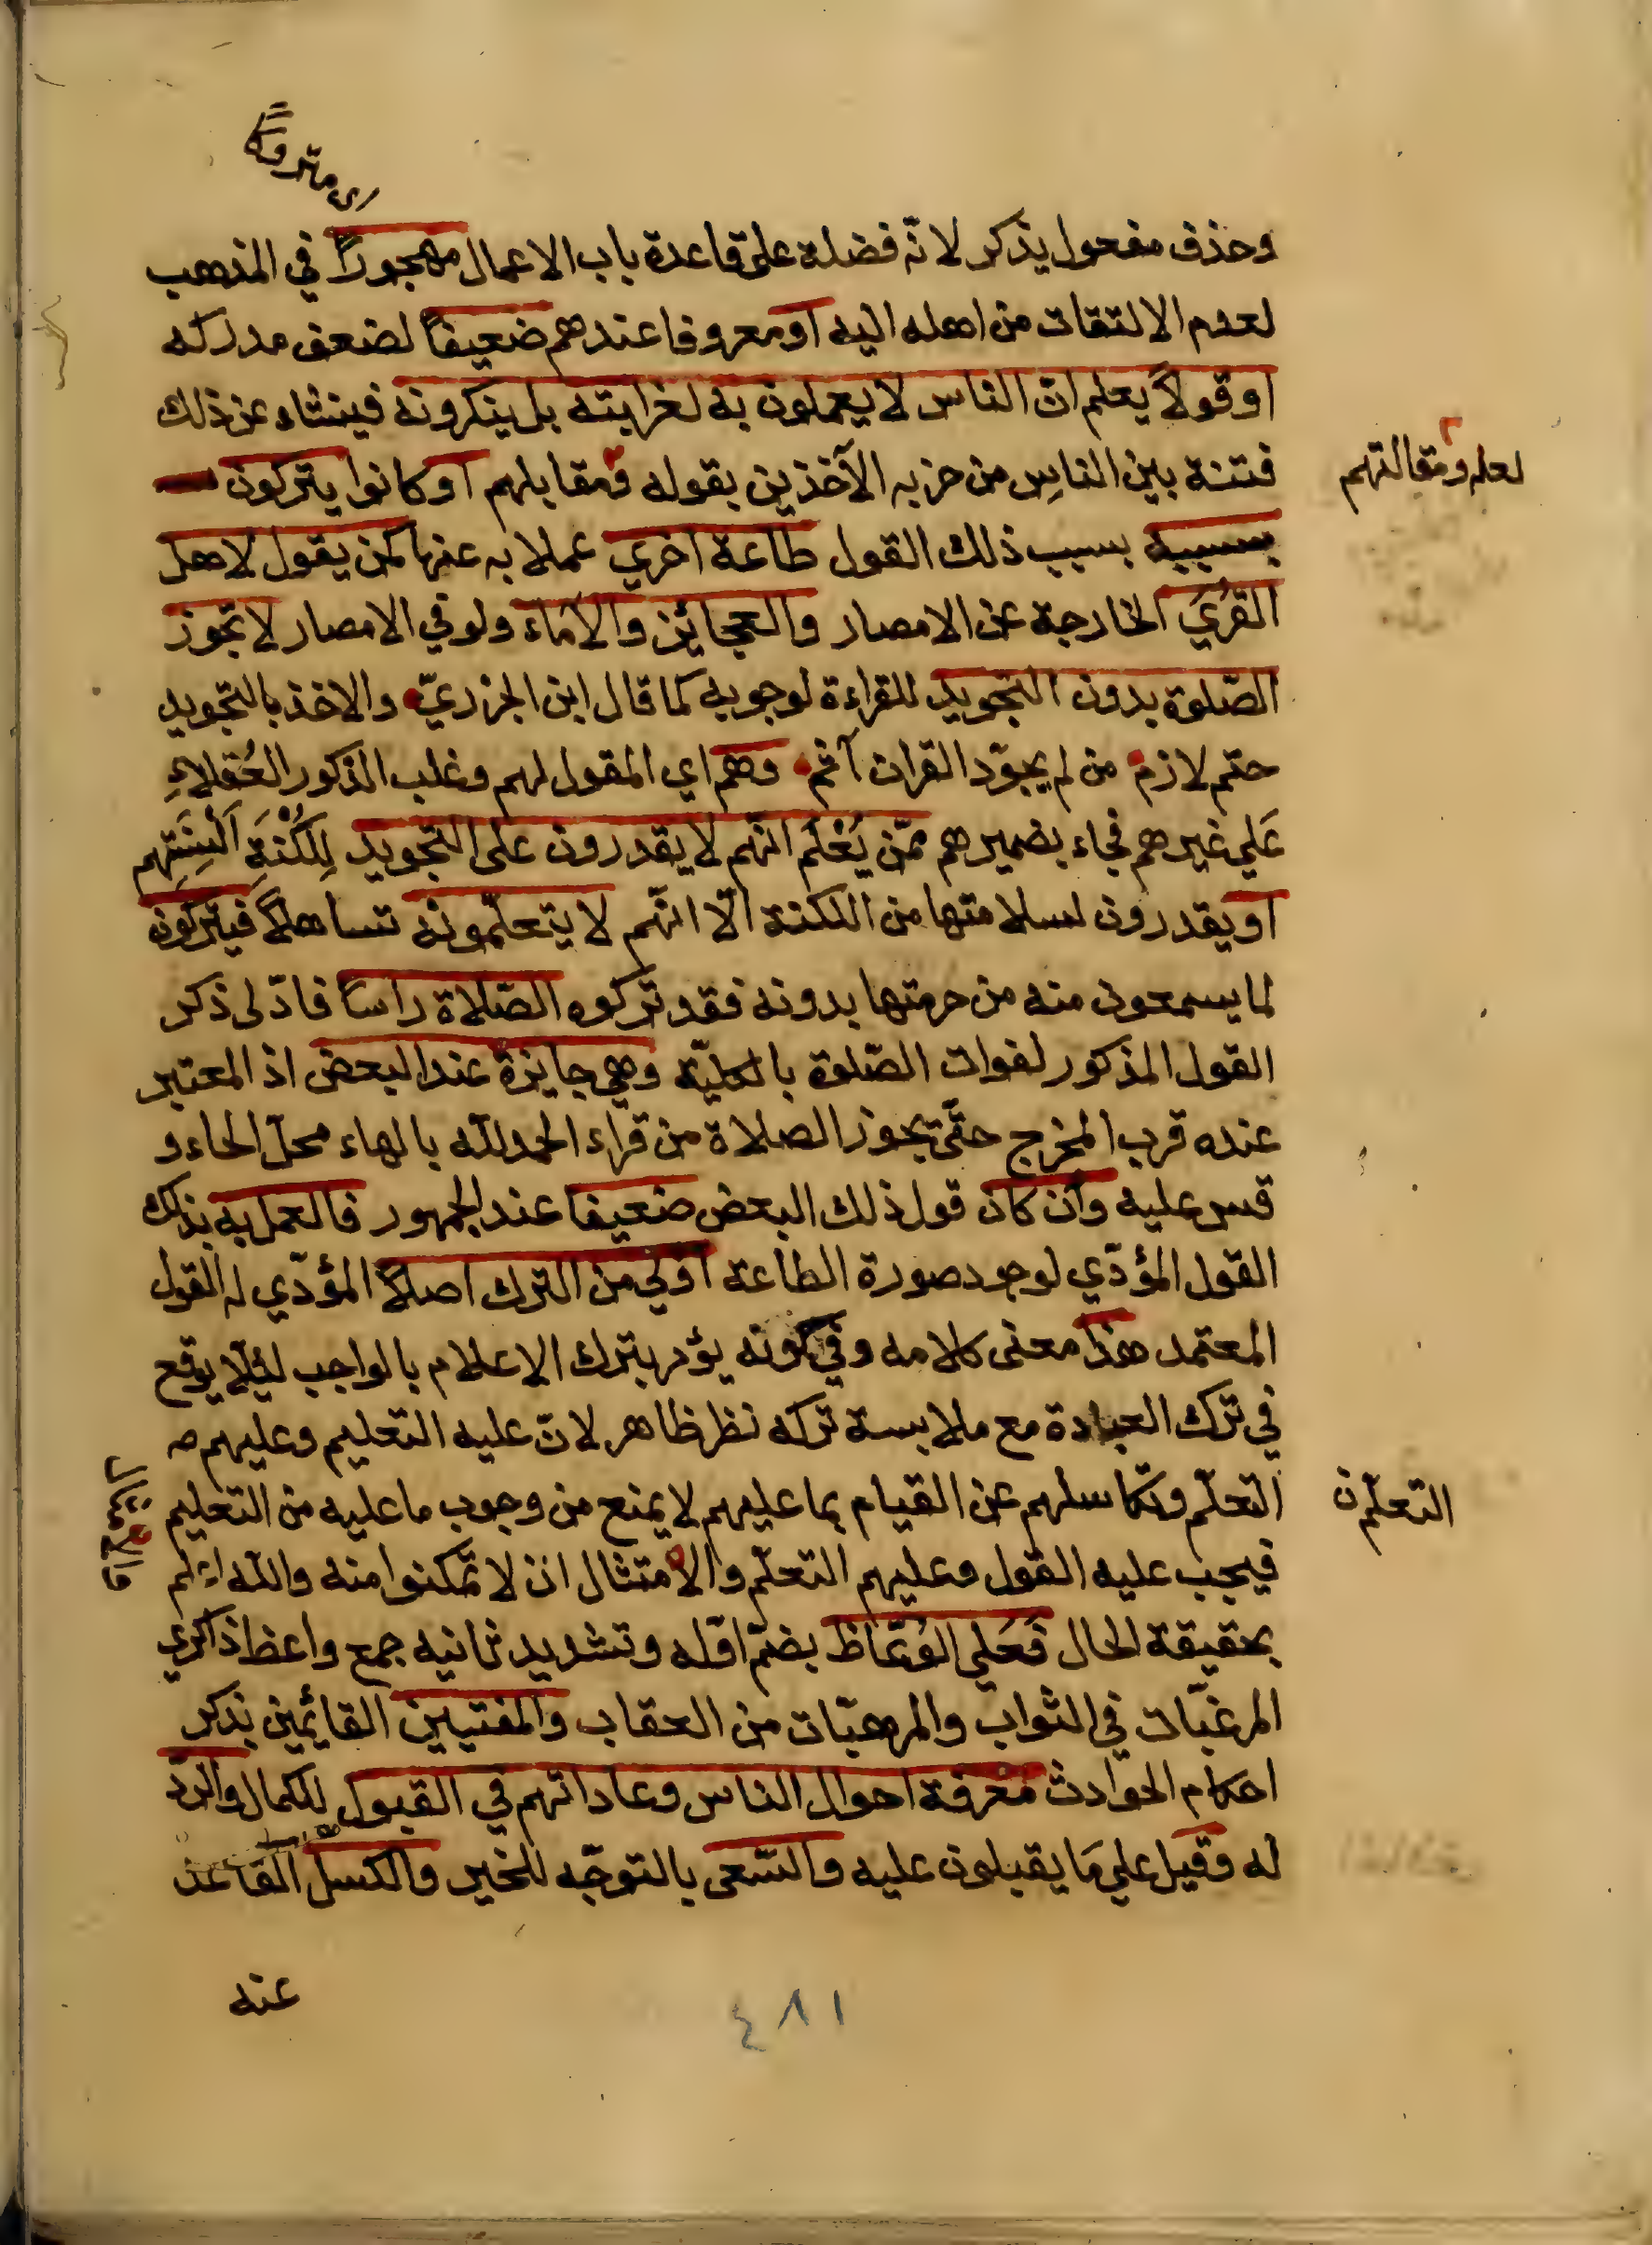 اي متروكاً
وحذف مفعول يذكر لانّه فضلة على قاعدة باب الاعمال مهجوراً في المذهب
لعدم الالتقات من اهله اليه او معروفا عندهم ضعيفاً لضعف مدركه
او قولاً يعلم ان الناس لا يعملون به لغرابته بل ينكرونه فينشاء عن ذلك
فتنة بين الناس من حزبه الآخذين بقوله ومقابلهم او كانوا يتركون
لعله ومقالتهم
بسببه بسبب ذلك القول طاعة اخري عملا به عنها كمن يقول لاهل
القُريَ الخارجة عن الامصار والعجائز والاماء ولو في الامصار لا تجوز
الصّلوة بدون التجويد للقراءة لوجوبه كما قال ابن الجزريّ والاخذ بالتجويد
حتم لازم من لم يجوّد القران آثم وهم اي المقول لهم وغلب الذكور العُقلاءِ
عَلي غيرهم فجاء بضميرهم ممّن يُعْلَم انّهم لا يقدرون على التجويد لِلُكْنَةِ اَلْسِنَتِهم
او يقدرون لسلامتها من اللكنة الّا انّهم لا يتعلّمونه تساهلاً فيتركون
لما يسمعون منه من حرمتها بدونه فقد تركوه الصّلاة راساً فادّى ذكر
القول المذكور لفوات الصّلوة بالكليّة وهي جايزة عند البعض اذ المعتبر
عنده قرب المخرج حتّى يجوز الصلاة من قراء الحمد لله بالهاء محلّ الحاء و
قس عليه وان كان قول ذلك البعض ضعيفا عند الجمهور فالعمل به بذلك
القول المؤدّي لوجود صورة الطاعة اولي من الترك اصلاً المؤدّي له القول
المعتمد هذا معنى كلامه وفي كونه يؤمر بترك الاعلام بالواجب ليئلا يوقع
في ترك العبادة مع ملابسة تركه نظر ظاهر لانّ عليه التعليم وعليهم
التعلّم وتكاسلهم عن القيام بما عليهم لا يمنع من وجوب ما عليه من التعليم
التعلّم ن
فيجب عليه القول وعليهم التعلّم والامتثال ان لا تمكنوا منه والله اعلم
بحقيقة الحال فَعَلي الوُعّاظ بضمّ اوّله وتشديد ثانيه جمع واعظ ذاكري
المرغّبات في الثواب والمرهبّات من العقاب والمفتيين القائمين بذكر
احكام الحوادث معرفة احوال الناس وعاداتهم في القبول للكمال والردّ
له وقيل علي ما يقبلون عليه والسّعى بالتوجّه للخير والكسل القاعد
عنه
٤٨١